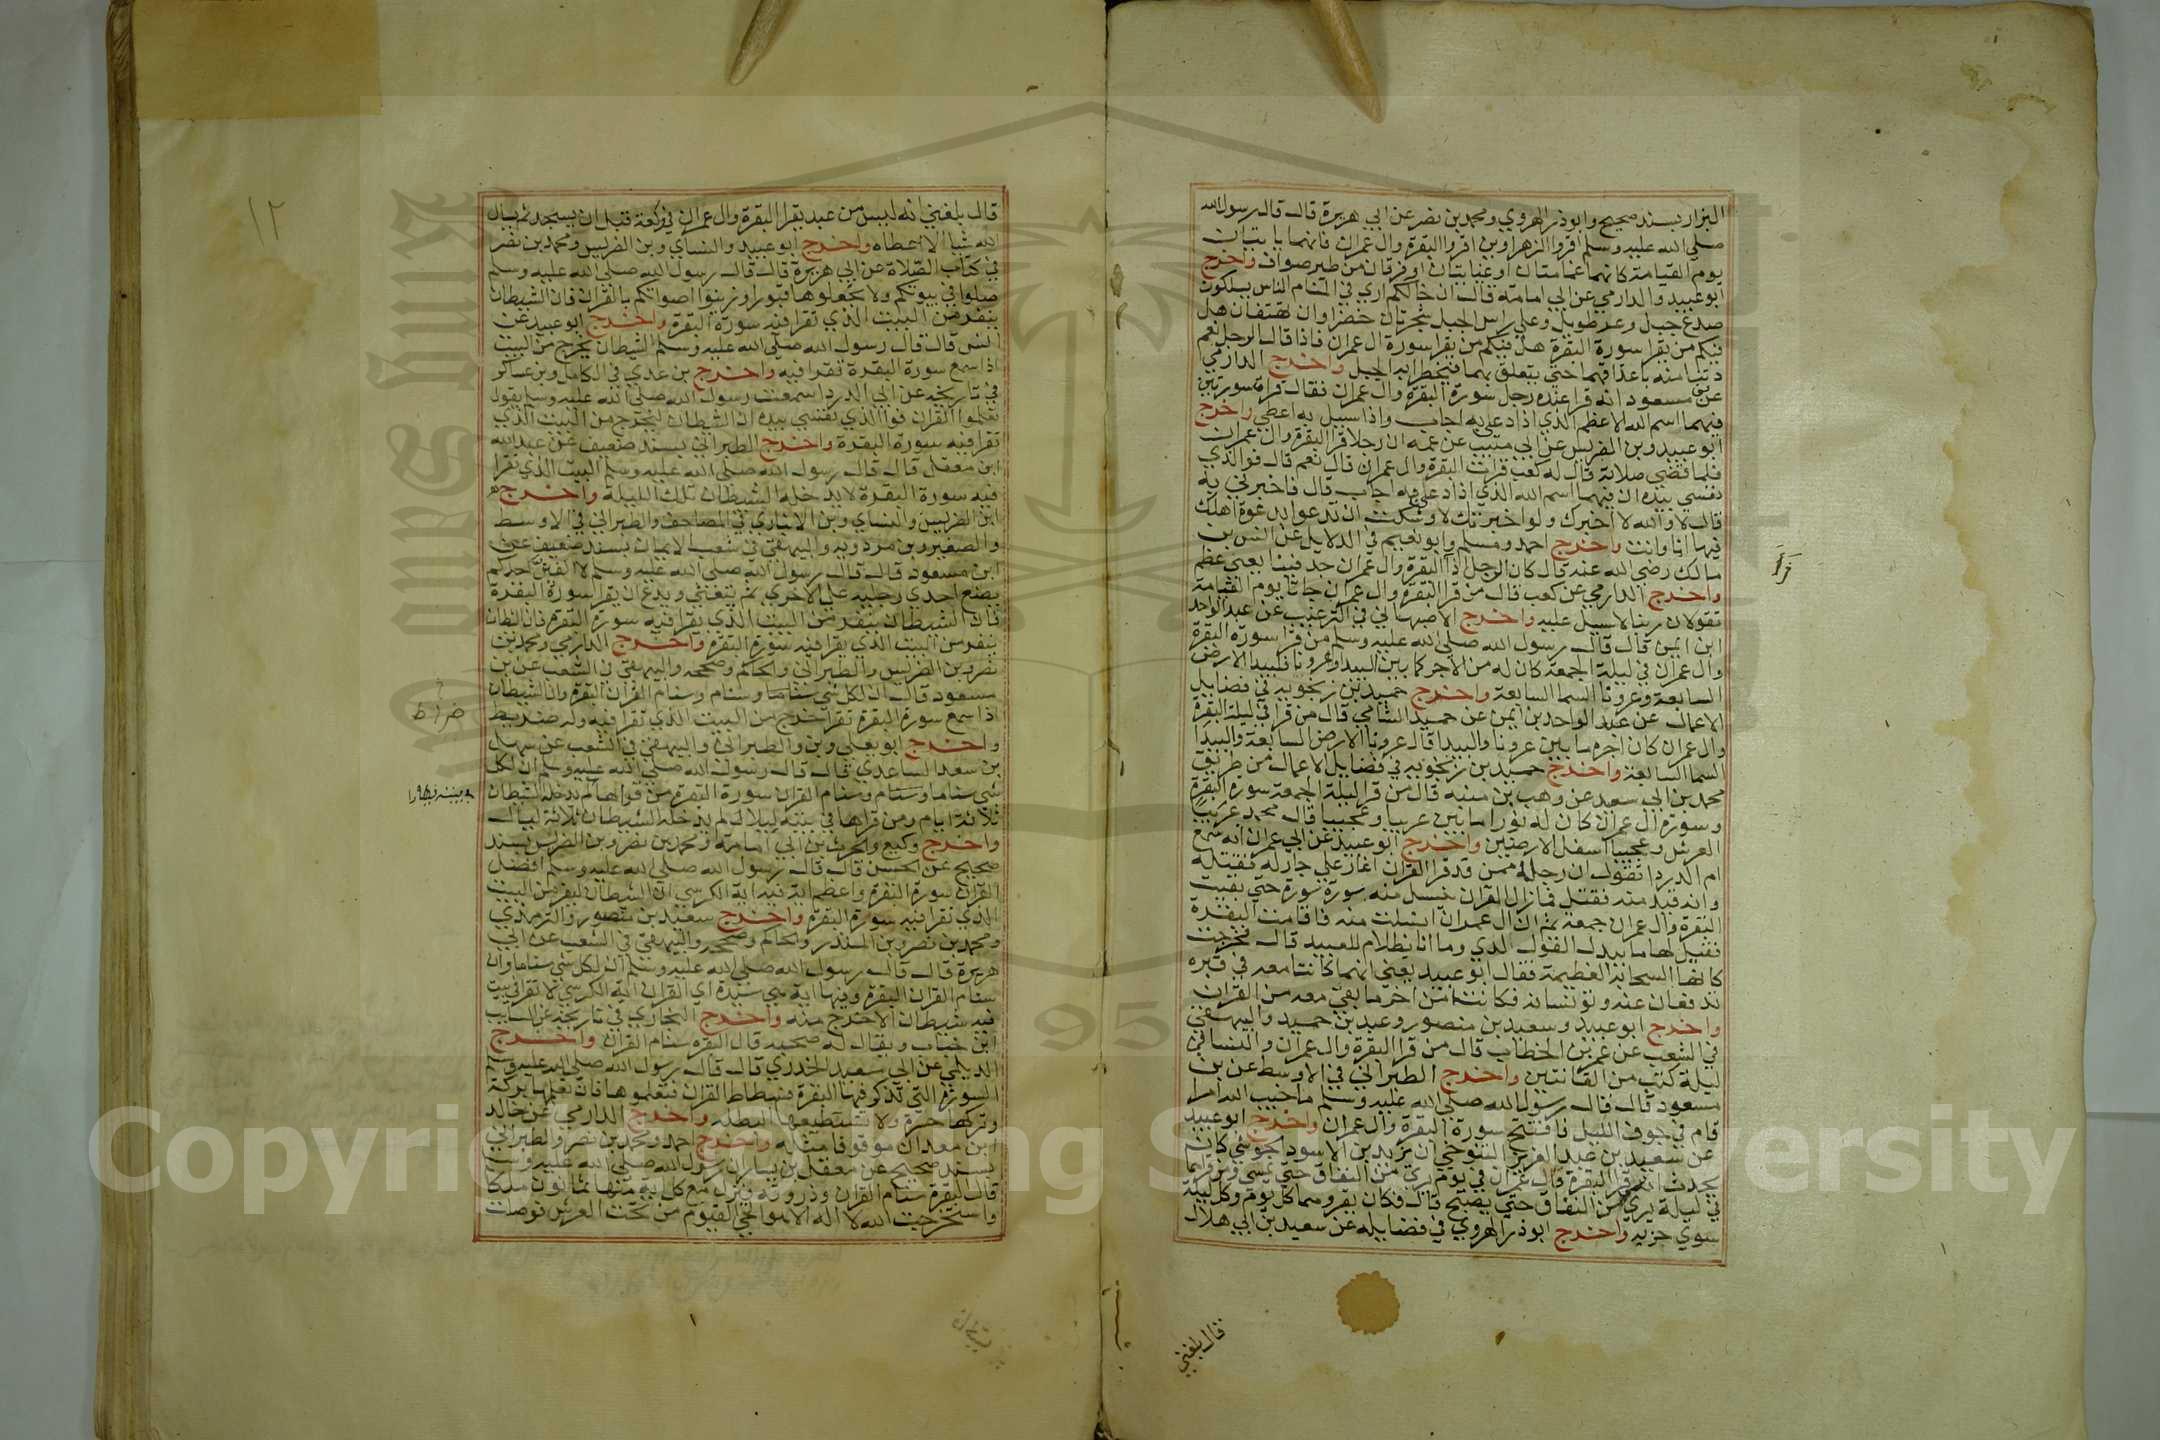 البزار بسند صحيح وابو ذر الهروي ومحمد بن نصر عن ابي هريرة قال قال رسول الله
صلي الله عليه وسلم اقروا الزهراوين اقروا البقرة وال عمران فانهما ياتيان
يوم القيامة كانهما غمامتان او غيايتان او فرقان من طير صواف واخرج
ابو عبيد والدارمي عن ابي امامة قال ان اخالكم اري في المنام الناس يسلكون
صدع جبل وعر طويل وعلي راس الجبل شجرتان خضراوان تهتفان هل
فيكم من يقرا سورة البقرة هل فيكم من يقرا سورة ال عمران فاذا قال الرجل نعم
دنتا منه باعذاقهما حتي يتعلق بهما فيخطرا به الجبل واخرج الدارمي
عن بن مسعود انه قرا عنده رجل سورة البقرة وال عمران فقال قرات سورتين
فيهما اسم الله الاعظم الذي اذا دعي به اجاب واذا سيل به اعطي واخرج
ابو عبيد وبن الضريس عن ابي منيب عن عمه ان رجلا قرا البقرة وال عمران
فلما قضي صلاته قال له كعب قرات البقرة وال عمران قال نعم قال فوالذي
نفسي بيده ان فيهما اسم الله الذي اذا دعي به اجاب قال فاخبرني به
قال لا والله لا اخبرك ولو اخبرتك لاوشكت ان تدعو بدعوة اهلك
فيها انا وانت واخرج احمد ومسلم وابو نعيم في الدلايل عن انس بن
مالك رضي الله عنه قال كان الرجل اذا قرا البقرة وال عمران جد فينا يعني عظم
واخرج الدارمي عن كعب قال من قرا البقرة وال عمران جاتا يوم القيامة
تقولان ربنا لا سبيل عليه واخرج الاصبهاني في الترغيب عن عبد الواحد
ابن ايمن قال قال رسول الله صلي الله عليه وسلم من قرا سورة البقرة
وال عمران في ليلة الجمعة كان له من الاجر كما بين لبيدا وعروبا فلبيدا الارض
السابعة وعروبا السما السابعة واخرج حميد بن زنجويه في فضايل
الاعمال عن عبد الواحد بن ايمن عن حميد الشامي قال من قرا في ليلة البقرة
وال عمران كان اجره ما بين عروبا ولبيدا قال عروبا الارض السابعة ولبيدا
السما السابعة واخرج حميد بن زنجويه في فضايل الاعمال من طريق
محمد بن ابي سعيد عن وهب بن منبه قال من قرا ليلة الجمعة سورة البقرة
وسورة ال عمران كان له نورا ما بين عريبا وعجيبا قال محمد عريبا
العرش وعجيبا اسفل الارضين واخرج ابو عبيد عن ابي عمران انه سمع
ام الدردا تقول ان رجلا ممن قد قرا القران اغار علي جار له فقتله
وانه قيد منه فقتل فما زال القران ينسل منه سورة سورة حتي بقيت
البقرة وال عمران جمعة ثم ان ال عمران انسلت منه فاقامت البقرة
فقيل لها ما يبدل القول لدي وما انا بظلام للعبيد قال فخرجت
كانها السحابة العظيمة فقال ابو عبيد يعني انهما كانتا معه في قبره
تدفعان عنه وتونسانه فكانتا من اخر ما بقي معه من القران
واخرج ابو عبيد وسعيد بن منصور وعبد بن حميد والبيهقي
في الشعب عن عمر بن الخطاب قال من قرا البقرة وال عمران والنسا في
ليلة كتب من القانتين واخرج الطبراني في الاوسط عن بن
مسعود قال قال رسول الله صلي الله عليه وسلم ما خيب الله امرا
قام في جوف الليل فافتتح سورة البقرة وال عمران واخرج ابو عبيد
عن سعيد بن عبد العزيز التنوخي ان يزيد بن الاسود الجرشي كان
يحدث انه من قرا البقرة وال عمران في يوم بري من النفاق حتي يمسي ومن قراهما
في ليلة بري من النفاق حتي يصبح قال فكان يقروهما كل يوم وكل ليلة
سوي جزيه واخرج ابو ذر الهروي في فضايله عن سعيد بن ابي هلال
قال بلغني
١٢
قال بلغني انه ليس من عبد يقرا البقرة وال عمران في ركعة قبل ان يسجد ثم يسال
الله شيا الا اعطاه واخرج ابو عبيد والنساي وبن الضريس ومحمد بن نصر
في كتاب الصلاة عن ابي هريرة قال قال رسول الله صلي الله عليه وسلم
صلوا في بيوتكم ولا تجعلوها قبورا وزينوا اصواتكم بالقران فان الشيطان
ينفر من البيت الذي تقرا فيه سورة البقرة واخرج ابو عبيد عن
انس قال قال رسول الله صلي الله عليه وسلم الشيطان يخرج من البيت
اذا سمع سورة البقرة تقرا فيه واخرج بن عدي في الكامل وبن عساكر
في تاريخه عن ابي الدردا سمعت رسول الله صلي الله عليه وسلم يقول
تعلموا القران فوالذي نفسي بيده ان الشيطان ليخرج من البيت الذي
تقرا فيه سورة البقرة واخرج الطبراني بسند ضعيف عن عبد الله
ابن مغفل قال قال رسول الله صلي الله عليه وسلم البيت الذي تقرا
فيه سورة البقرة لا يدخله الشيطان تلك الليلة واخرج
ابن الضريس والنساي وبن الانباري في المصاحف والطبراني في الاوسط
والصغير وبن مردويه والبيهقي في شعب الايمان بسند ضعيف عن
ابن مسعود قال قال رسول الله صلي الله عليه وسلم لا الفين احدكم
يضع احدي رجليه علي الاخري ثم يتغني ويدع ان يقرا سورة البقرة
فان الشيطان ينفر من البيت الذي يقرا فيه سورة البقرة فان الشيطان
ينفر من البيت الذي يقرا فيه سورة البقرة واخرج الدارمي ومحمد بن
نصر وبن الضريس والطبراني والحاكم وصححه والبيهقي في الشعب عن بن
مسعود قال ان لكل شي سناما وسنام القران البقرة وان الشيطان
اذا سمع سورة البقرة تقرا خرج من البيت الذي تقرا فيه وله ضريط
واخرج ابو يعلي وبن والطبراني والبيهقي في الشعب عن سهل
بن سعد الساعدي قال قال رسول الله صلي الله عليه وسلم ان لكل
شي سناما وسنام القران سورة البقرة من قراها لم يدخله الشيطان
ثلاثة ايام ومن قراها في بيته ليلا لم يدخله الشيطان ثلاثة ليال
واخرج وكيع والحرث بن ابي اسامة ومحمد بن نصر وبن الضريس بسند
صحيح عن الحسن قال قال رسول الله صلي الله عليه وسلم افضل
القران سورة البقرة واعظم اية فيه اية الكرسي ان الشيطان ليفر من البيت
الذي تقرا فيه سورة البقرة واخرج سعيد بن منصور والترمذي
ومحمد بن نصر وبن المنذر والحاكم وصححه والبيهقي في الشعب عن ابي
هريرة قال قال رسول الله صلي الله عليه وسلم ان لكل شي سناما وان
سنام القران البقرة وفيها اية هي سيدة اي القران اية الكرسي لا تقرا في بيت
فيه شيطان الا خرج منه واخرج البخاري في تاريخه عن السايب
ابن خباب ويقال له صحبة قال البقرة سنام القران واخرج
الديلمي عن ابي سعيد الخدري قال قال رسول الله صلي الله عليه وسلم
السورة التي تذكر فيها البقرة فسطاط القران فتعلموها فان تعلمها بركة
وتركها حسرة ولا تستطيعها البطلة واخرج الدارمي عن خالد
ابن معدان موقوفا مثله واخرج احمد ومحمد بن نصر والطبراني
بسند صحيح عن معقل بن يسار ان رسول الله صلي الله عليه وسلم
قال البقرة سنام القران وذروته ونزل مع كل اية منها ثمانون ملكا
واستخرجت الله لا اله الا هو الحي القيوم من تحت العرش فوصلت
Copyright King Saud University